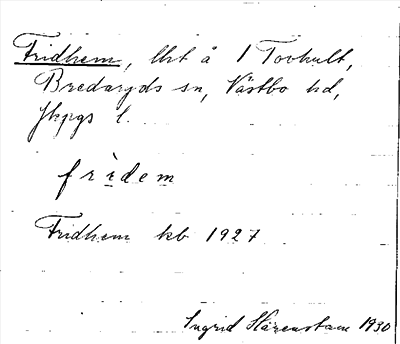 Fridhem, lht å 1 Tovhult,
Bredaryds sn, Västbo hd,
Jkpgs l.
frìdem
Fridhem kb 1927
Ingrid Härenstam 1930